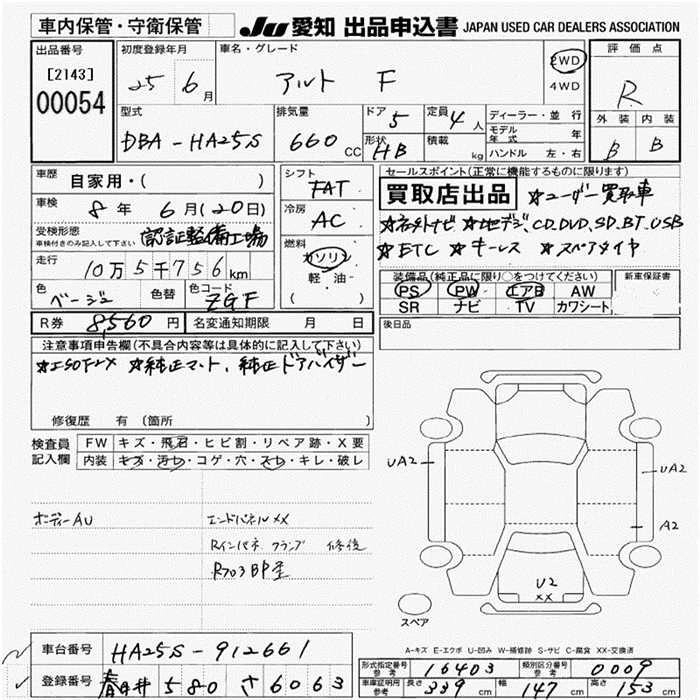 車内保管・守衛保管
JU 愛知 出品申込書 JAPAN USED CAR DEALERS ASSOCIATION
出品番号
[2143]
00054
初度登録年月
25 6月
車名・グレード
アルト F
2WD
4WD
評価点
R
外装 内装
B B
型式
DBA-HA25S
排気量
660 CC
ドア 5
形状 HB
定員 4人
積載 kg
ディーラー・並行
モデル年式 年
ハンドル 左・右
車歴
自家用・( )
車検
8年 6月(20日)
受検形態
車検付きのみ記入して下さい
認証整備工場
走行
10万5千756km
色
ベージュ
色替
色コード
ZGF
シフト
FAT
冷房
AC
燃料
ガソリン
軽・油
( )
R券 8,560円
名変通知期限 月 日
セールスポイント(正常に機能するものに限ります)
買取店出品 ☆ユーザー買取車
☆社外ナビ ☆地デジ、CD、DVD、SD、BT、USB
☆ETC ☆キーレス ☆スペアタイヤ
装備品(純正品に限り○をつけてください)
PS PW エアB AW
SR ナビ TV カワシート
新車保証書
後日品
注意事項申告欄(不具合内容等は具体的に記入して下さい)
☆純正マット、純正ドアバイザー
修復歴 有(箇所
検査員
記入欄
FW キズ・飛石・ヒビ割・リペア跡・X要
内装 キズ・汚レ・コゲ・穴・スレ・キレ・破レ
ボデーAU
エンドパネルXX
Rインパネ クランプ 修後
R703BP歪
UA2
UA2
A2
U2
XX
スペア
A-キズ E-エクボ U-凹み W-補修跡 S-サビ C-腐食 XX-交換済
車台番号 HA25S-912661
登録番号 春日井 580 さ 6063
型式指定番号
参考
16403
類別区分番号
参考
0009
車庫証明用
参考
長さ 339cm 幅 147cm 高さ 153cm